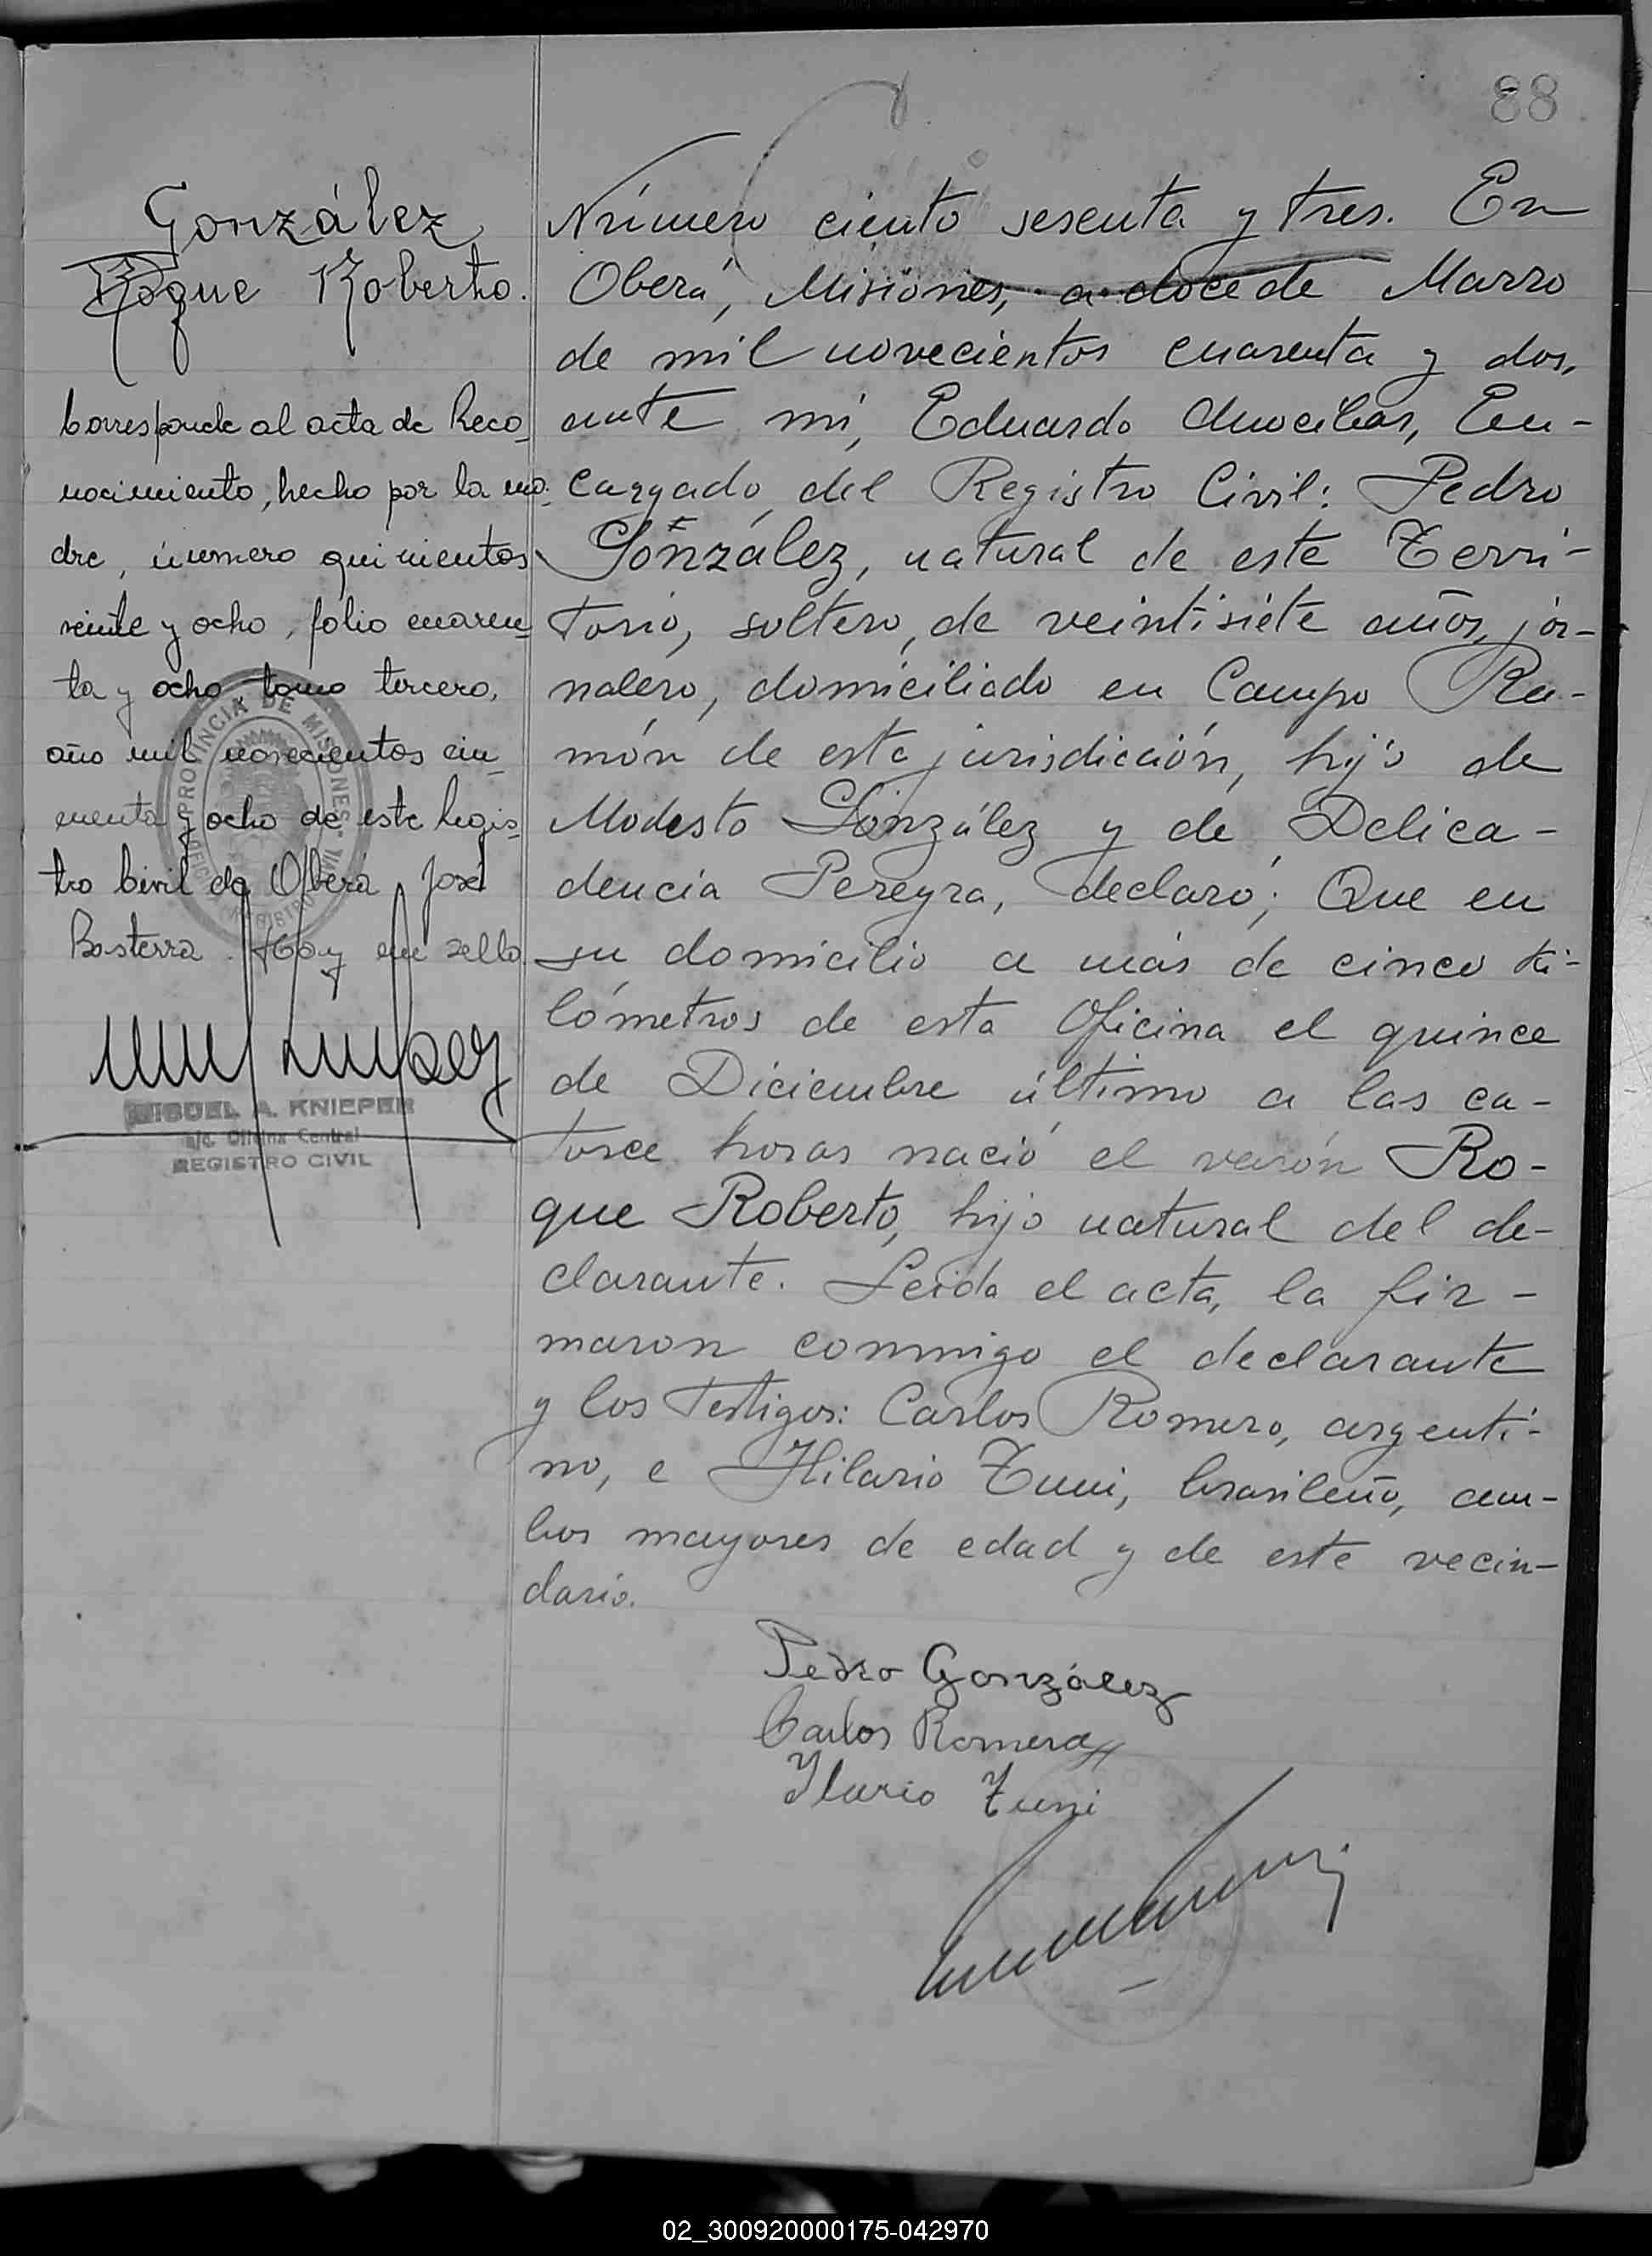 88
González
Roque Roberto.
Corresponde al acta de Reco-
nocimiento, hecho por la ma-
dre, número quinientos
veinte y ocho, folio cuaren-
ta y ocho, tomo tercero,
año mil novecientos cin-
cuenta y ocho de este Regis-
tro Civil de Oberá José
Basterra. Hay un sello
PROVINCIA DE MISIONES
MIGUEL A. KNIEPER
a/c. Oficina Central
REGISTRO CIVIL
Número ciento sesenta y tres. En
Oberá, Misiones, a doce de Marzo
de mil novecientos cuarenta y dos,
ante mí, Eduardo En-
cargado del Registro Civil: Pedro
González, natural de este Terri-
torio, soltero, de veintisiete años, jor-
nalero, domiciliado en Campo Ra-
món de esta jurisdicción, hijo de
Modesto González y de Delica-
dencia Pereyra, declaró; Que en
su domicilio a más de cinco ki-
lómetros de esta Oficina el quince
de Diciembre último a las ca-
torce horas nació el varón Ro-
que Roberto, hijo natural del de-
clarante. Leida el acta, la fir-
maron conmigo el declarante
y los testigos: Carlos Romero, argenti-
no, e Hilario Zuni, brasileño, am-
bos mayores de edad y de este vecin-
dario.
Pedro González
Carlos Romero
Ilario Zuni
02_300920000175-042970